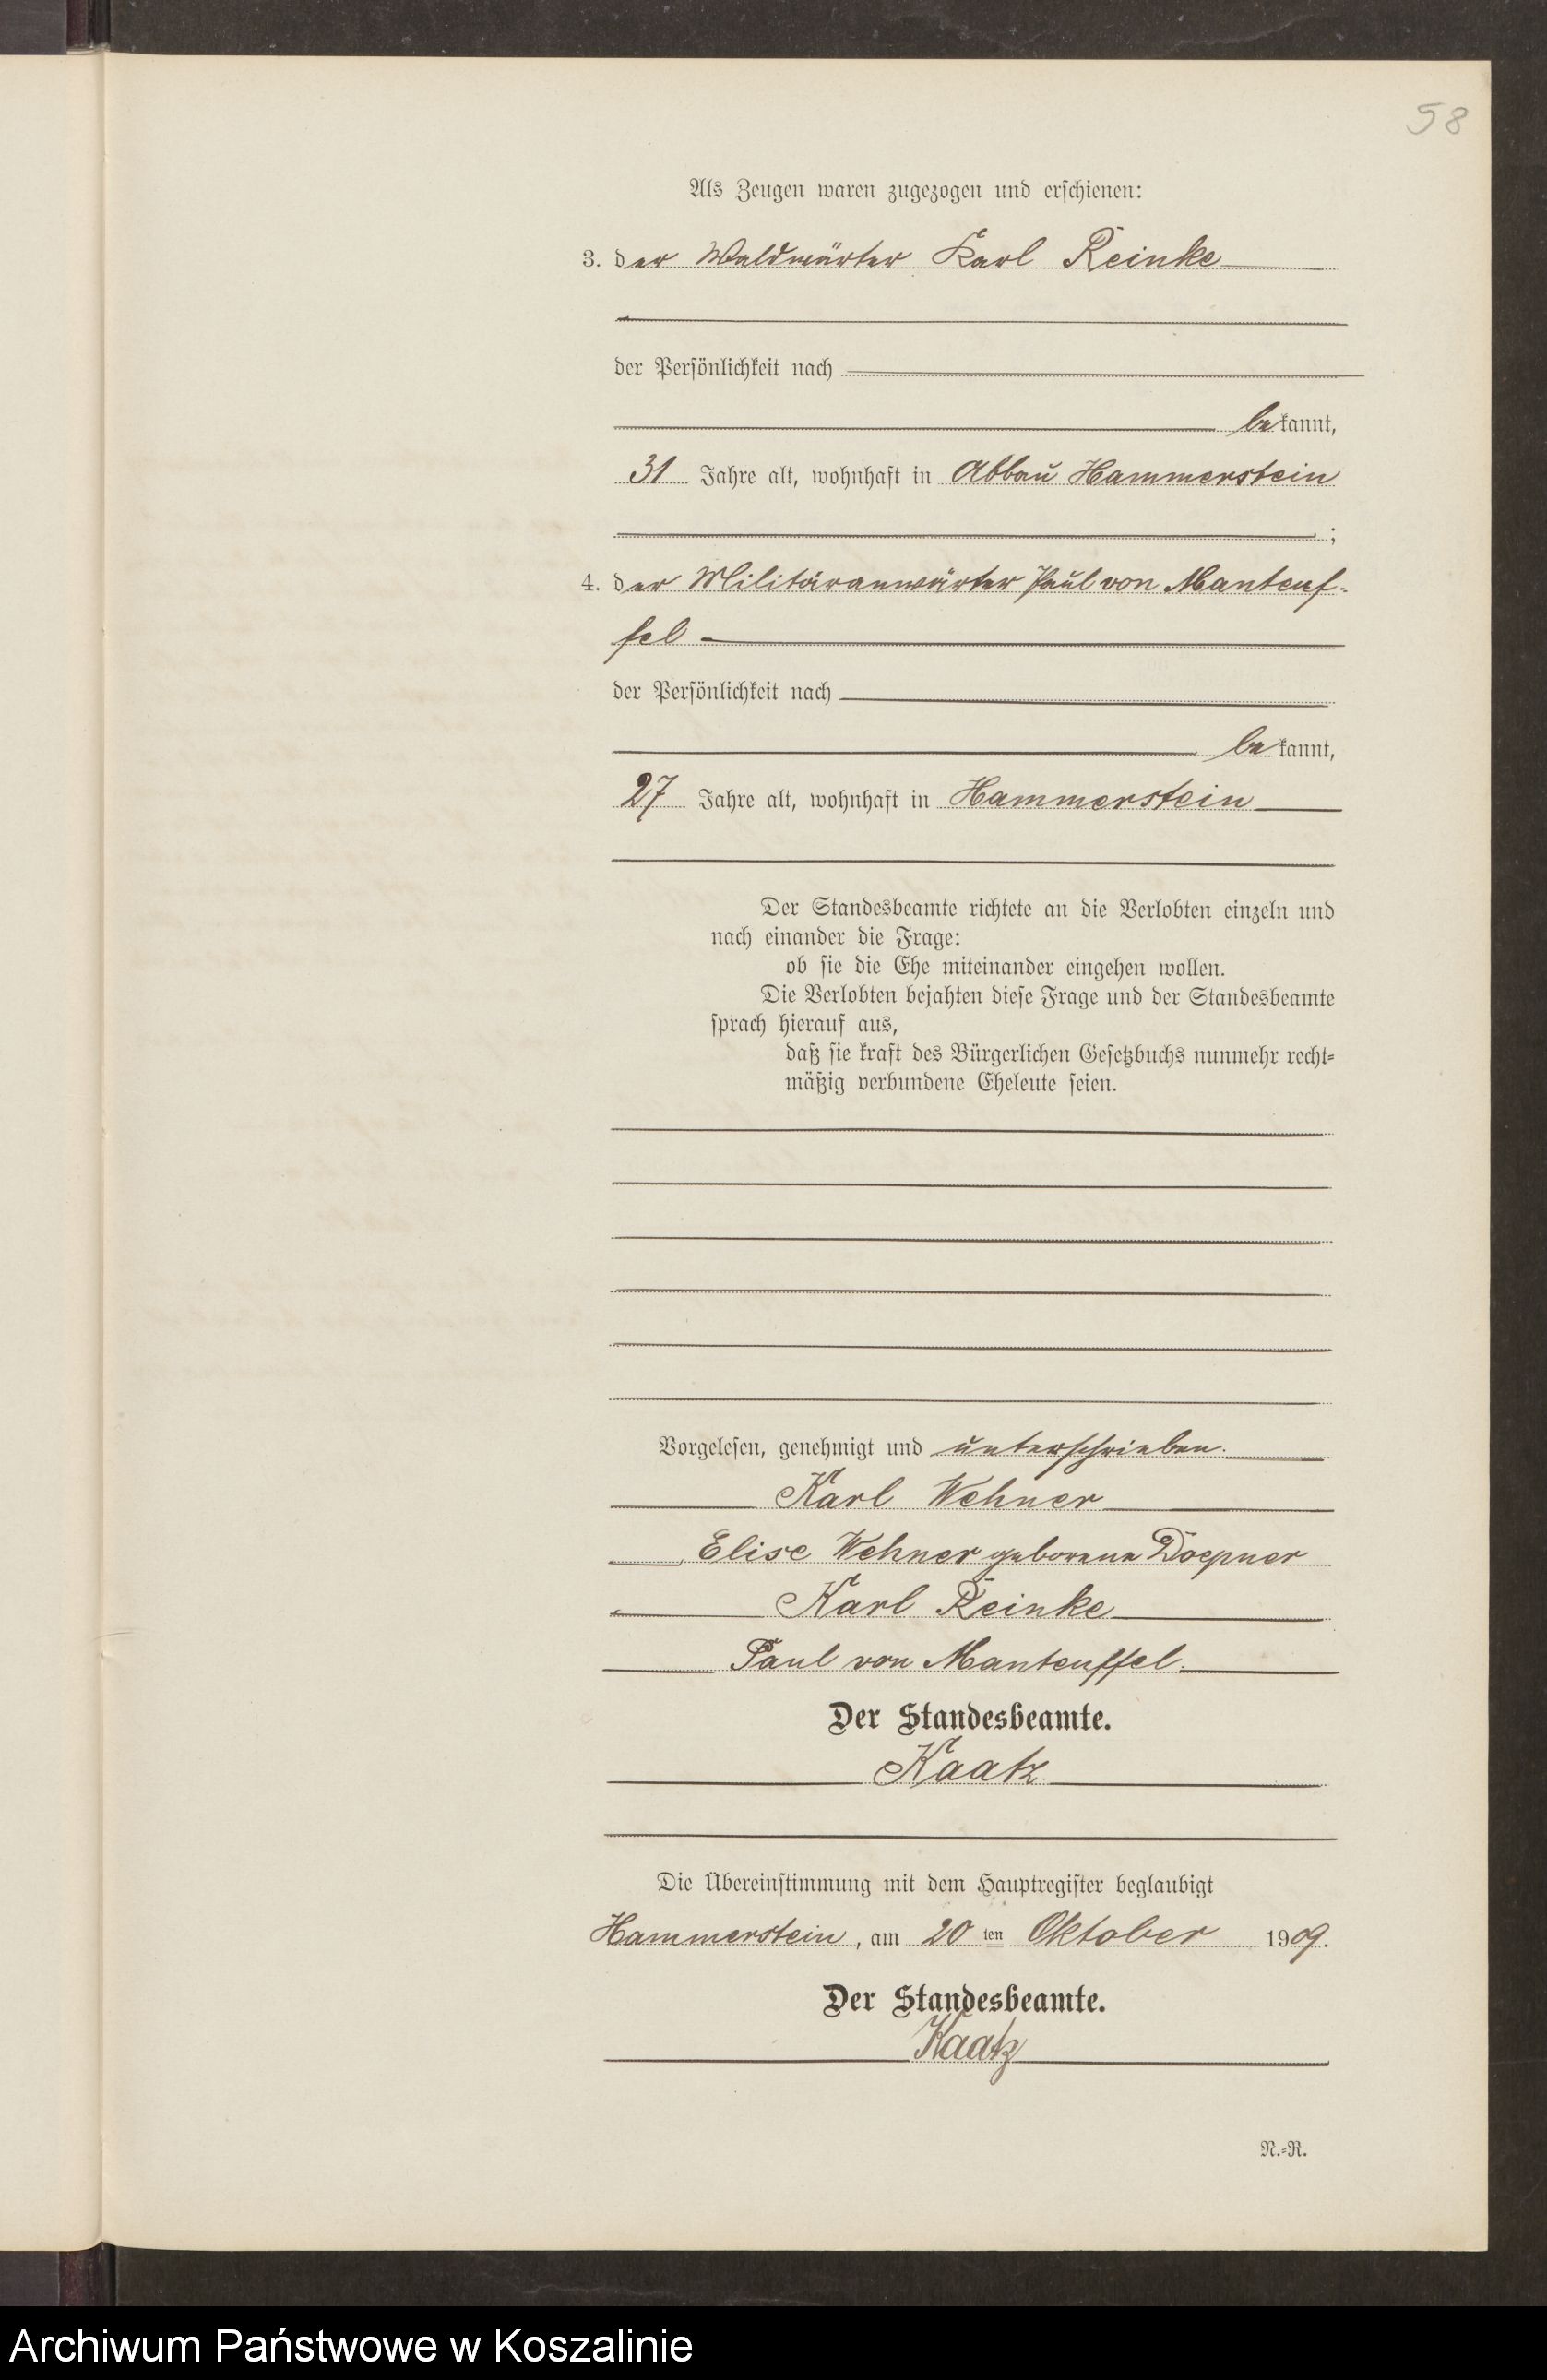 58
Als Zeugen waren zugezogen und erschienen:
3. der Waldwärter Karl Reinke
der Persönlichkeit nach
bekannt,
31 Jahre alt, wohnhaft in Abbau Hammerstein
;
4. der Militäranwärter Paul von Manteuf-
fel
der Persönlichkeit nach
bekannt,
27 Jahre alt, wohnhaft in Hammerstein
Der Standesbeamte richtete an die Verlobten einzeln und
nach einander die Frage:
ob sie die Ehe miteinander eingehen wollen.
Die Verlobten bejahten diese Frage und der Standesbeamte
sprach hierauf aus,
daß sie kraft des Bürgerlichen Gesetzbuchs nunmehr recht-
mäßig verbundene Eheleute seien.
Vorgelesen, genehmigt und unterschrieben.
Karl Wehner
Elise Wehner geborene Doepner
Karl Reinke
Paul von Manteuffel.
Der Standesbeamte.
Kaatz.
Die Übereinstimmung mit dem Hauptregister beglaubigt
Hammerstein, am 20 ten Oktober 1909.
Der Standesbeamte.
Kaatz
N.-R.
Archiwum Państwowe w Koszalinie